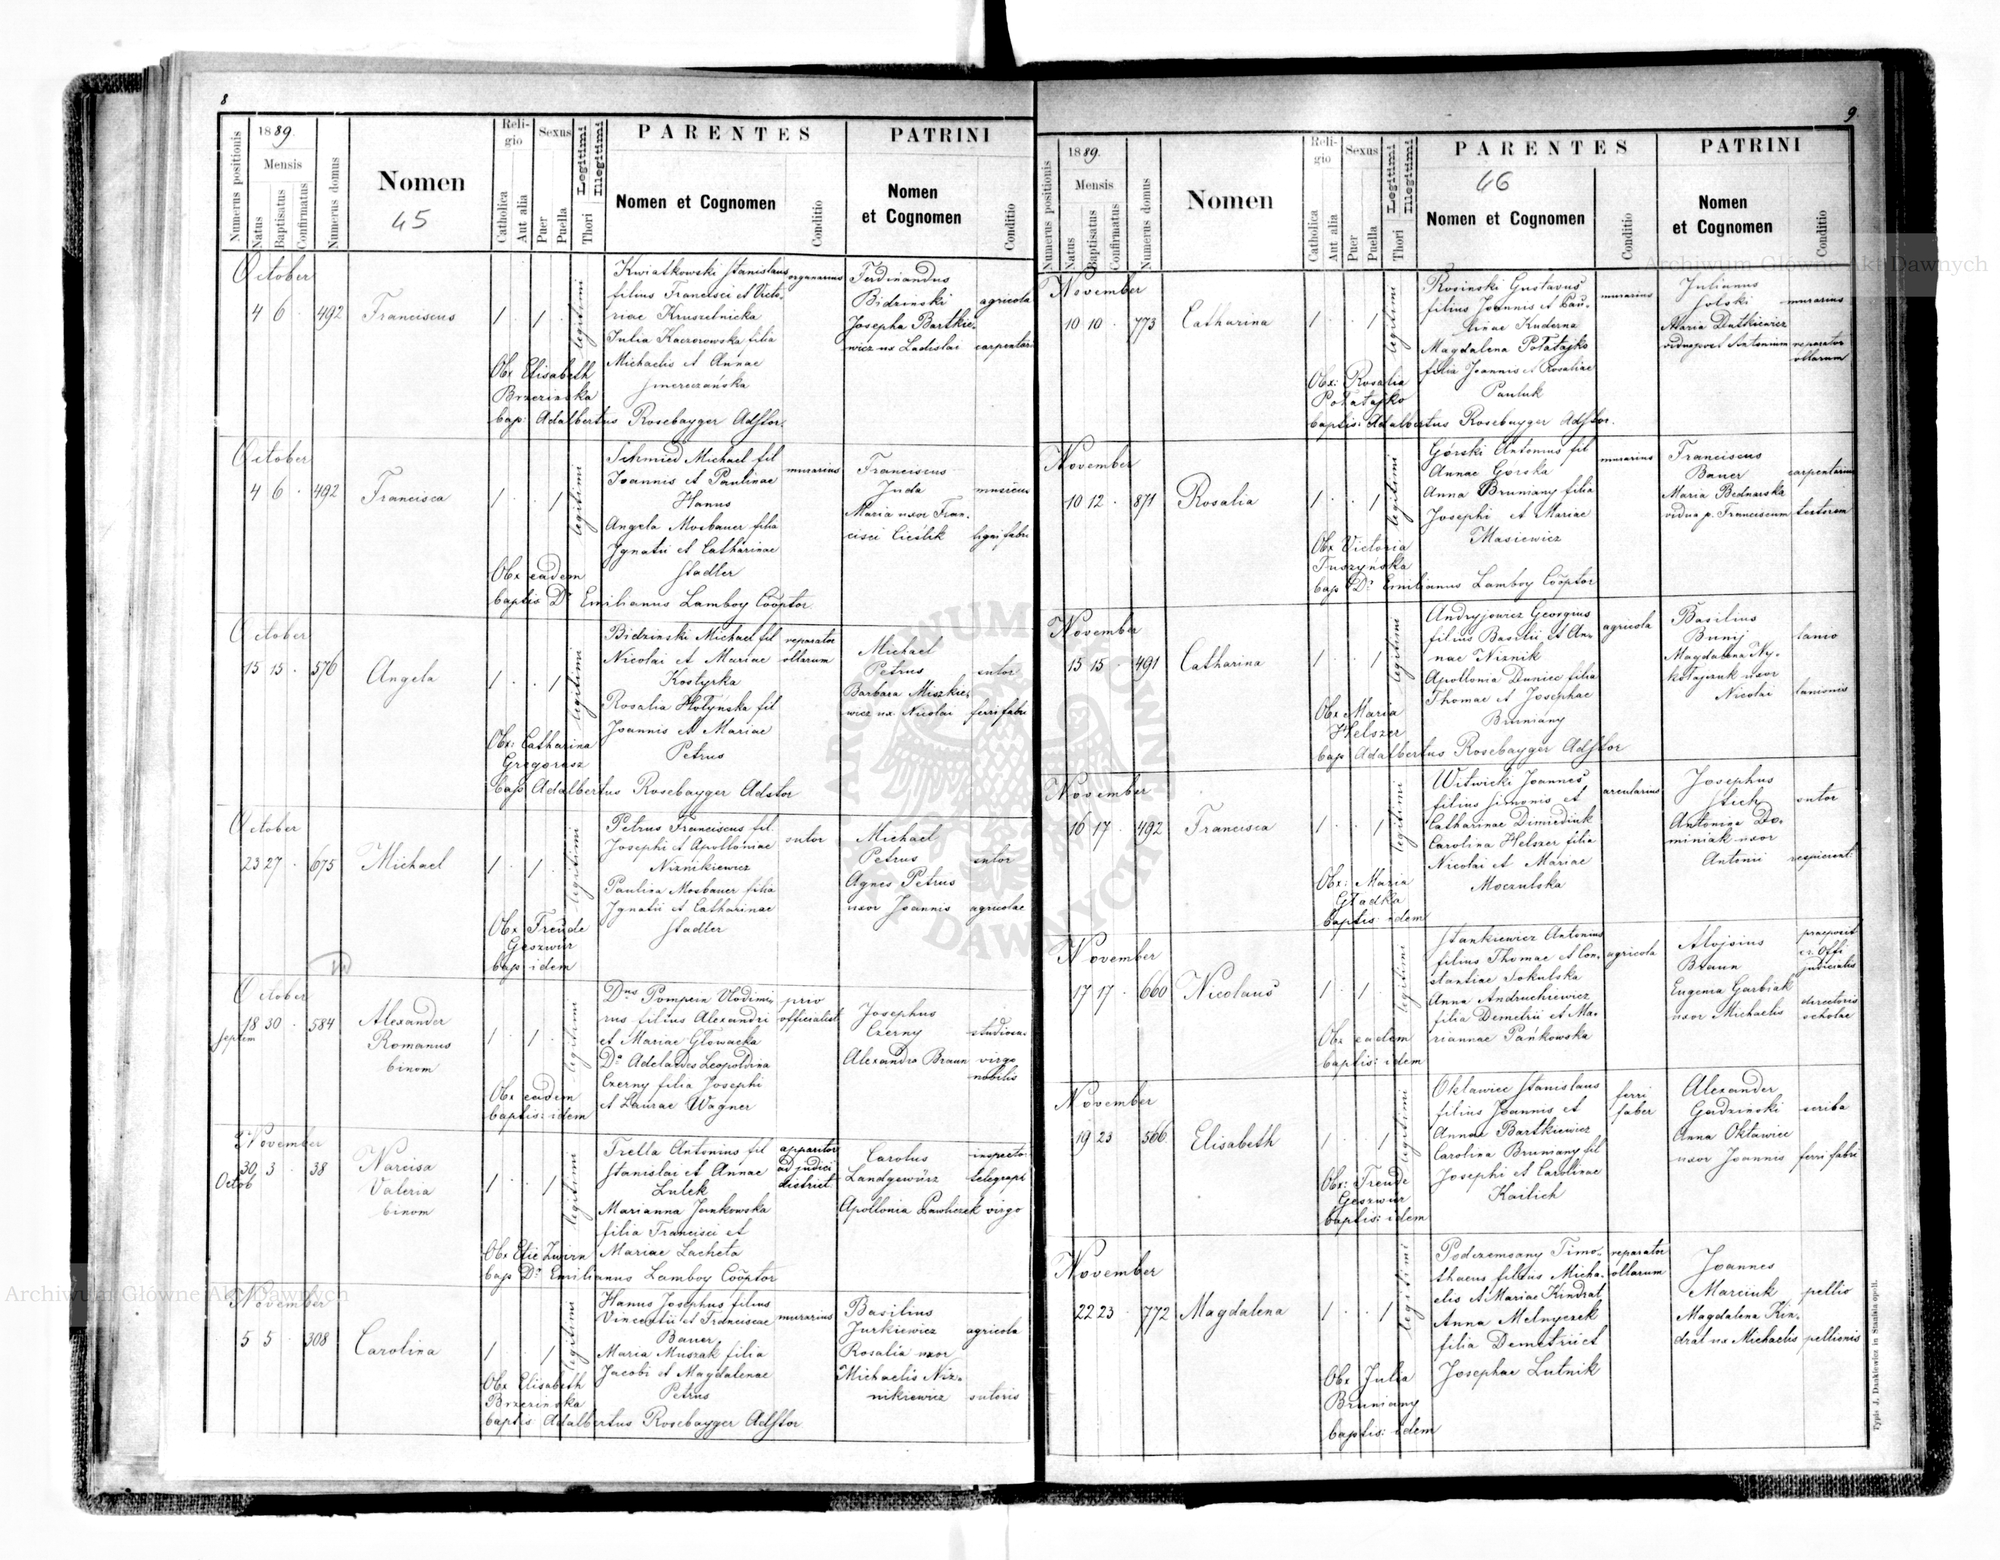 8
Numerus positionis
1889.
Mensis
Natus
Baptisatus
Confirmatus
Numerus domus
Nomen
45
Religio
Catholica
Aut alia
Sexus
Puer
Puella
Legitimi
Illegitimi
Thori
PARENTES
Nomen et Cognomen
Conditio
PATRINI
Nomen
et Cognomen
Conditio
October
4 6 . 492 Franciscus
1 . 1 .
legitimi
Kwiatkowski Stanislaus organarius
filius Francisci et Victo-
riae Kruszelnicka
Julia Kaczorowska filia
Michaelis et Annae
Smereczańska
Ferdinandus
Bidzinski agricola
Josepha Bartkie-
wicz ux Ladislai carpentari
Obx Elisabeth
Brzezinska
bap: Adalbertus Rosebayger Adstor.
October
4 6 . 492 Francisca
1 . . 1
legitimi
Schmied Michael fil murarius
Joannis et Paulinae
Hanus
Angela Mosbauer filia
Ignatii et Catharinae
Stadler
Franciscus
Juda musicus
Maria uxor Fran-
cisci Cieślik lignifabri
Obx eadem
baptis Ds Emilianus Lamboy Coöptor
October
15 15 . 576 Angela
1 . . 1
legitimi
Bidzinski Michael fil reparator
Nicolai et Mariae ollarum
Kostyrka
Rosalia Hołynska fil
Joannis et Mariae
Petrus
Michael
Petrus sutor
Barbara Miszkie-
wicz ux Nicolai ferrifabri
Obx: Catharina
Gregorasz
bap Adalbertus Rosebayger Adstor
October
23 27 . 675 Michael
1 . 1 .
legitimi
Petrus Franciscus fil. sutor
Josephi et Apolloniae
Niznikiewicz
Paulina Mosbauer filia
Ignatii et Catharinae
Stadler
Michael
Petrus sutor
Agnes Petrus
uxor Joannis agricolae
Obx Freude
Geszwür
bap idem
October
18 30 . 584 Alexander
Septem
Romanus
binom
1 . 1 .
legitimi
Dnus Pompeia Vlodimi- priv
rus filius Alexandri officialist
et Mariae Głowacka
Da Adelardes Leopoldina
Czerny filia Josephi
et Laurae Wagner
Josephus
Czerny studiosus
Alexandra Braun virgo
nobilis
Obx eadem
baptis: idem
3 November
30 3 . 38 Narcisa
Octob
Valeria
binom
1 . . 1
legitimi
Trella Antonius fil apparitor
Stanislai et Annae ad judici
Lulek district
Marianna Jankowska
filia Francisci et
Mariae Lacheta
Carolus inspector
Landgewürz telegrapi
Apollonia Pawliczek virgo
Obx Etie Zwirn
bap Ds Emilianus Lamboy Coöptor
November
5 5 . 308 Carolina
1 . . 1
legitimi
Hanus Josephus filius
Vincentii et Franciscae murarius
Bauer
Maria Muszak filia
Jacobi et Magdalenae
Petrus
Basilius
Jurkiewicz agricola
Rosalia uxor
Michaelis Niz-
nikiewicz sutoris
Obx Elisabeth
Brzezinska
baptis Adalbertus Rosebayger Adstor
9
Numerus positionis
1889.
Mensis
Natus
Baptisatus
Confirmatus
Numerus domus
Nomen
Religio
Catholica
Aut alia
Sexus
Puer
Puella
Legitimi
Illegitimi
Thori
PARENTES
46
Nomen et Cognomen
Conditio
PATRINI
Nomen
et Cognomen
Conditio
November
10 10 . 773 Catharina
1 . . 1
legitimi
Rosinski Gustavus murarius
filius Joannis et Pau-
linae Kuderna
Magdalena Połatajko
filia Joannis et Rosaliae
Pauluk
Julianus
Solski murarius
Maria Dutkiewicz
vidua post Antonium reparator
ollarum
Obx: Rosalia
Połatajko
baptis: Adalbertus Rosebayger Adstor.
November
10 12 . 871 Rosalia
1 . . 1
legitimi
Górski Antonius fil murarius
Annae Gorska
Anna Bruniany filia
Josephi et Mariae
Masiewicz
Franciscus
Bauer carpentarius
Maria Bednarska
vidua p. Franciscum textorem
Obx Victoria
Tuszyńska
bap Ds Emilianus Lamboy Coöptor
November
15 15 . 491 Catharina
1 . . 1
legitimi
Andryjowicz Georgius agricola
filius Basilii et An-
nae Niznik
Apollonia Duniec filia
Thomae et Josephae
Bruniany
Basilius
Bunij lanio
Magdalena My-
kołajczuk uxor
Nicolai lanionis
Obx Maria
Helszer
bap Adalbertus Rosebayger Adstor
November
16 17 . 492 Francisca
1 . . 1
legitimi
Witwicki Joannes arcularius
filius Simonis et
Catharinae Dimidiuk
Carolina Helszer filia
Nicolai et Mariae
Moczulska
Josephus
Stich sutor
Antonina Do-
miniak uxor
Antonii respicient.
Obx: Maria
Gładka
baptis: idem
November
17 17 . 660 Nicolaus
1 . 1 .
legitimi
Stankiewicz Antonius agricola
filius Thomae et Con-
stantiae Sokulska
Anna Andruchiewicz
filia Demetrii et Ma-
riannae Pańkowska
Aloisius praeposit
Braun cr. Offi
judicialis
Eugenia Garbiak
uxor Michaelis directoris
scholae
Obx eadem
baptis: idem
November
19 23 . 566 Elisabeth
1 . . 1
legitimi
Oktawiec Stanislaus ferri
filius Joannis et faber
Annae Bartkiewicz
Carolina Bruniany fil
Josephi et Carolinae
Kailich
Alexander
Gudzinski scriba
Anna Oktawiec
uxor Joannis ferri fabri
Obx: Freude
Geszwür
baptis: idem
November
22 23 . 772 Magdalena
1 . . 1
legitimi
Podzemsany Timo- reparator
thaeus filius Micha- ollarum
elis et Mariae Kindrat
Anna Melnyczek
filia Demetrii et
Josephae Lutnik
Joannes
Marciuk pellio
Magdalena Kin-
drat ux Michaelis pellionis
Obx Julia
Bruniany
baptis: idem
Typis J. Dankiewicz in Stanislaopoli.
Archiwum Główne Akt Dawnych
Archiwum Główne Akt Dawnych
ARCHIWUM GŁÓWNE AKT DAWNYCH